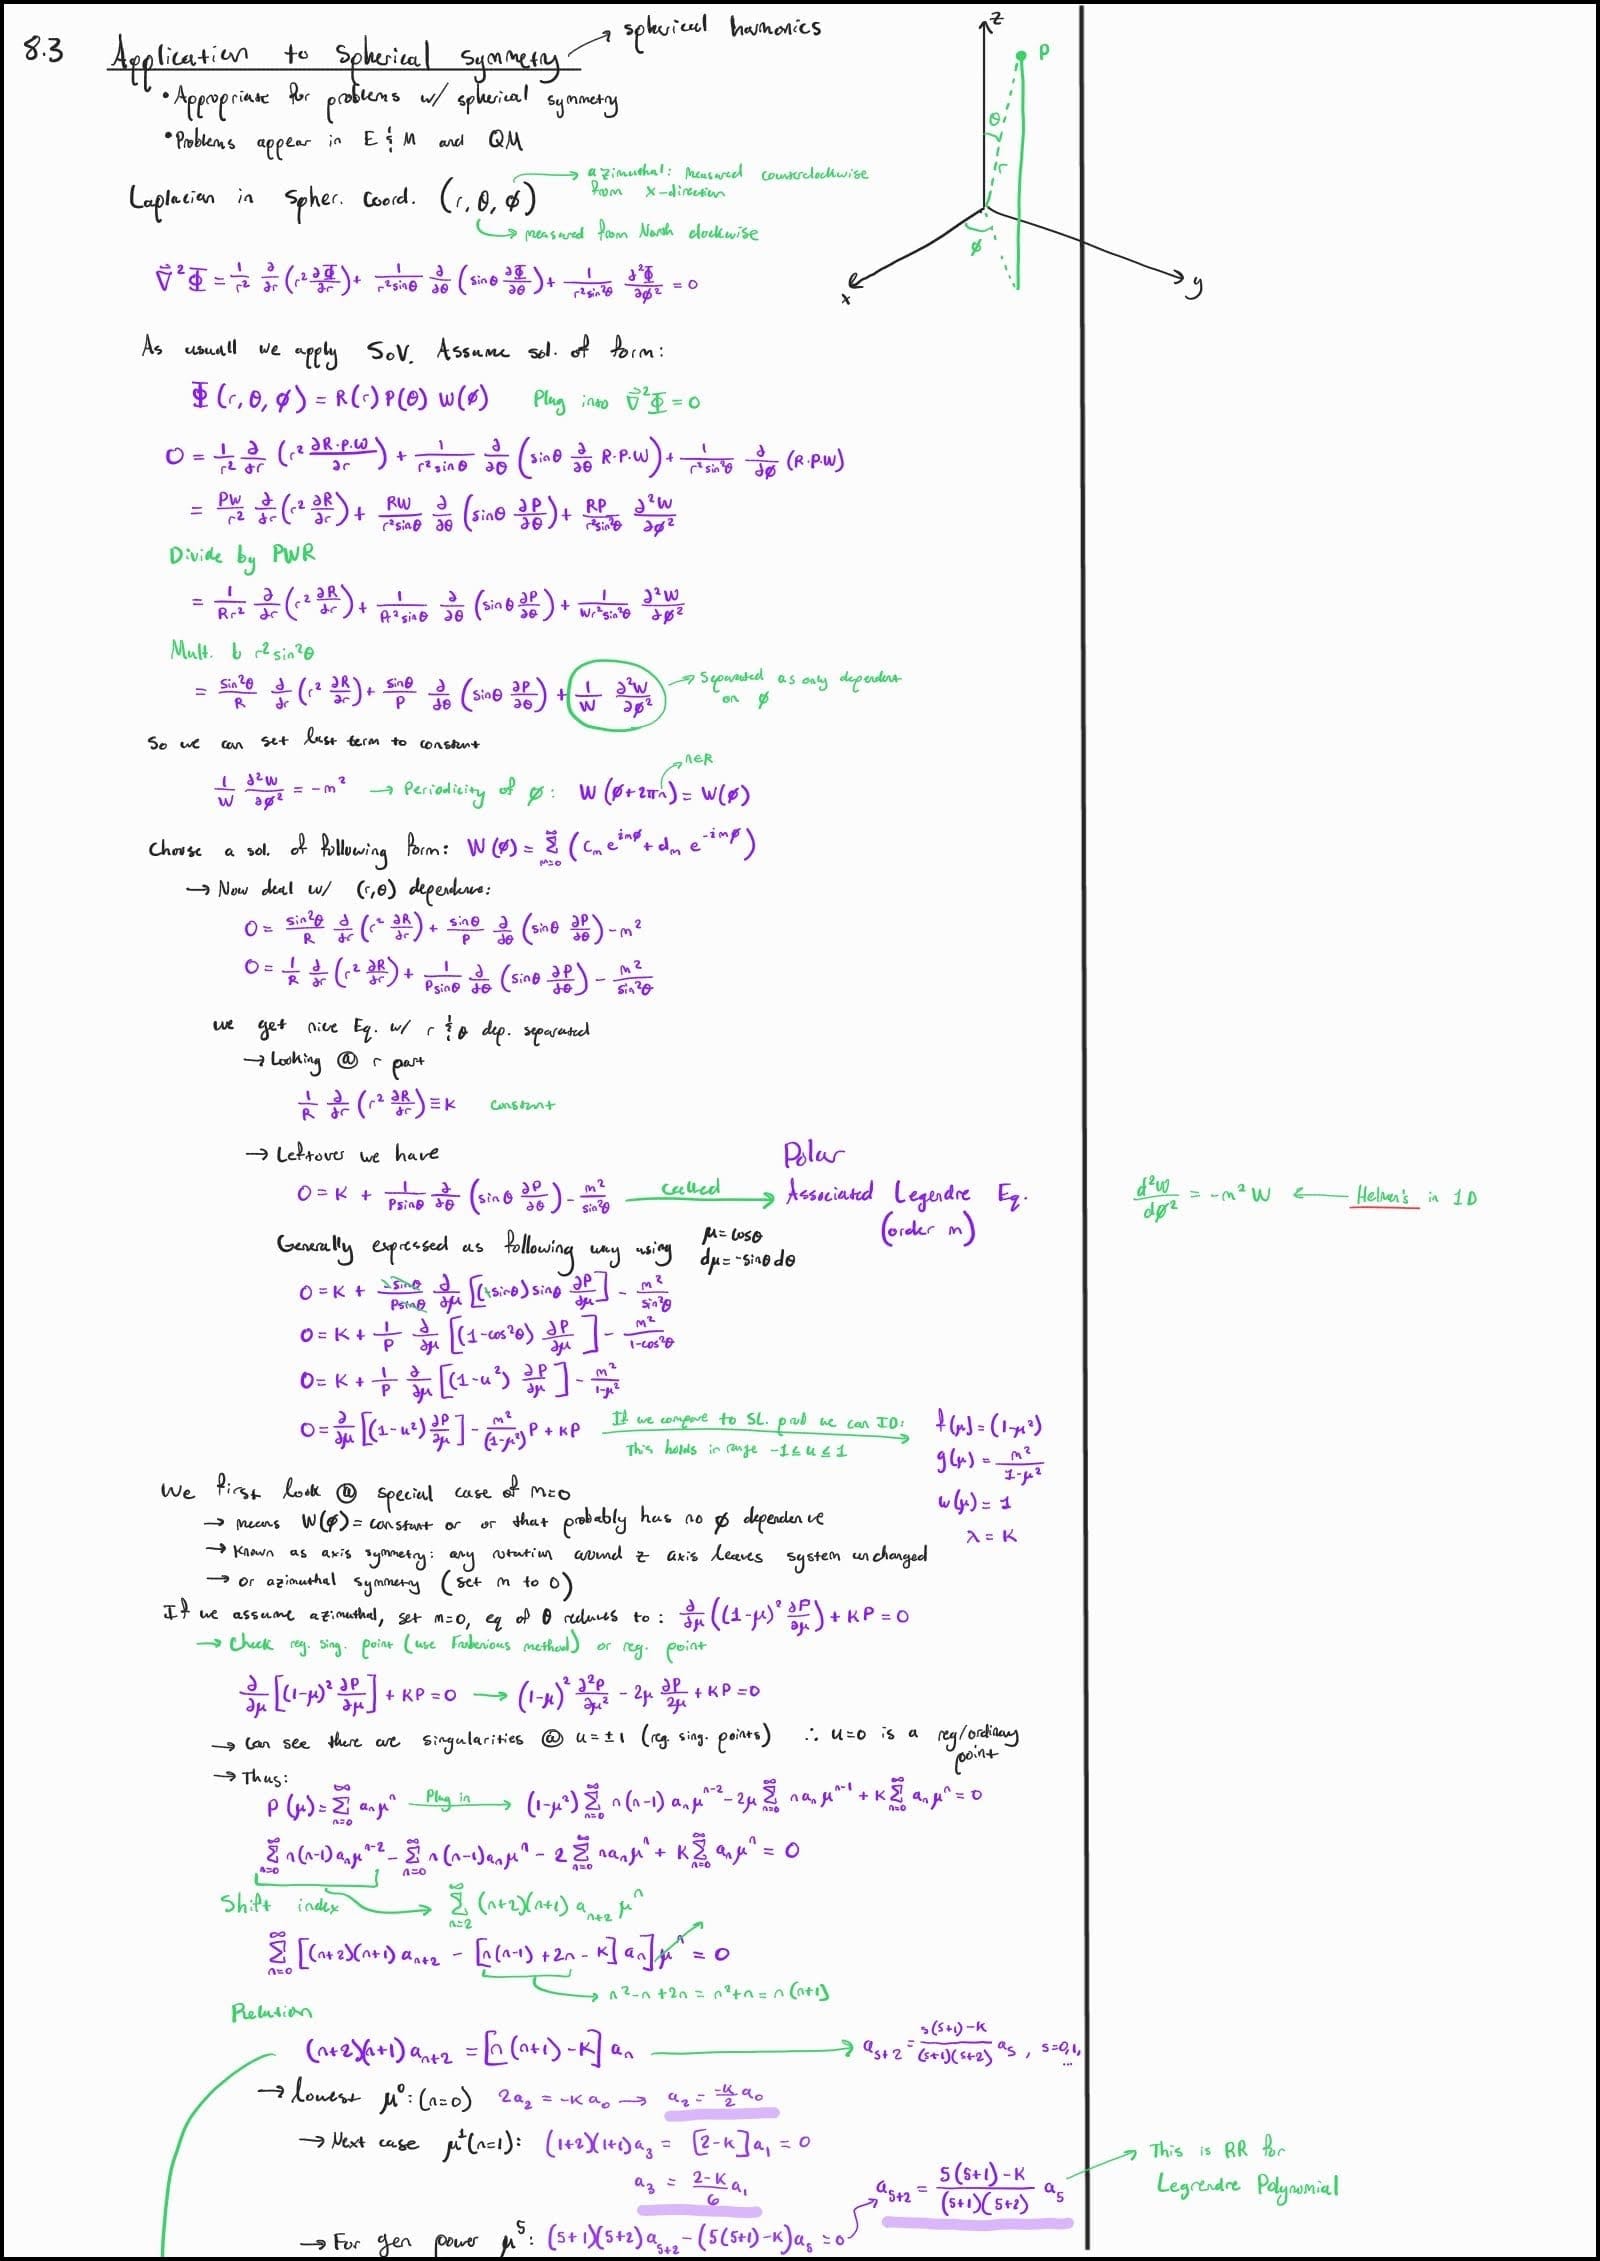 8.3 Application to Spherical Symmetry → spherical harmonics
• Appropriate for problems w/ spherical symmetry
• Problems appear in E & M and QM
z
P
θ
r
ϕ
x
y
Laplacian in Spher. Coord. (r, θ, ϕ)
→ azimuthal: measured counterclockwise from x-direction
→ measured from North clockwise
∇⃗²Φ = 1/r² ∂/∂r (r² ∂Φ/∂r) + 1/(r² sinθ) ∂/∂θ (sinθ ∂Φ/∂θ) + 1/(r² sin²θ) ∂²Φ/∂ϕ² = 0
As usuall we apply SoV. Assume sol. of form:
Φ(r, θ, ϕ) = R(r) P(θ) W(ϕ) Plug into ∇⃗²Φ = 0
0 = 1/r² ∂/∂r (r² ∂R·P·W/∂r) + 1/(r² sinθ) ∂/∂θ (sinθ ∂/∂θ R·P·W) + 1/(r² sin²θ) ∂/∂ϕ (R·P·W)
= PW/r² ∂/∂r (r² ∂R/∂r) + RW/(r² sinθ) ∂/∂θ (sinθ ∂P/∂θ) + RP/(r² sin²θ) ∂²W/∂ϕ²
Divide by PWR
= 1/(Rr²) ∂/∂r (r² ∂R/∂r) + 1/(Pr² sinθ) ∂/∂θ (sinθ ∂P/∂θ) + 1/(Wr² sin²θ) ∂²W/∂ϕ²
Mult. b r² sin²θ
= sin²θ/R ∂/∂r (r² ∂R/∂r) + sinθ/P ∂/∂θ (sinθ ∂P/∂θ) + 1/W ∂²W/∂ϕ² → Separated as only dependent on ϕ
So we can set last term to constant
1/W ∂²W/∂ϕ² = -m² → Periodicity of ϕ: W(ϕ+2πn) = W(ϕ) → n∈R
Choose a sol. of following form: W(ϕ) = Σ_{m=0}^∞ (c_m e^{imϕ} + d_m e^{-imϕ})
→ Now deal w/ (r,θ) dependence:
0 = sin²θ/R ∂/∂r (r² ∂R/∂r) + sinθ/P ∂/∂θ (sinθ ∂P/∂θ) - m²
0 = 1/R ∂/∂r (r² ∂R/∂r) + 1/(P sinθ) ∂/∂θ (sinθ ∂P/∂θ) - m²/sin²θ
we get nice Eq. w/ r & θ dep. separated
→ Looking @ r part
1/R ∂/∂r (r² ∂R/∂r) ≡ K constant
→ Leftover we have
0 = K + 1/(P sinθ) ∂/∂θ (sinθ ∂P/∂θ) - m²/sin²θ called → Polar Associated Legendre Eq. (order m)
d²W/dϕ² = -m² W ← Helmn's in 1D
Generally expressed as following way using μ = cosθ dμ = -sinθ dθ
0 = K + -sinθ/(P sinθ) ∂/∂μ [(+sinθ) sinθ ∂P/∂μ] - m²/sin²θ
0 = K + 1/P ∂/∂μ [(1-cos²θ) ∂P/∂μ] - m²/(1-cos²θ)
0 = K + 1/P ∂/∂μ [(1-u²) ∂P/∂μ] - m²/(1-μ²)
0 = ∂/∂μ [(1-u²) ∂P/∂μ] - m²/(1-μ²) P + KP If we compare to SL. prob we can ID: This holds in range -1 ≤ u ≤ 1 →
f(μ) = (1-μ²)
g(μ) = m²/(1-μ²)
w(μ) = 1
λ = K
We first look @ special case of m=0
→ means W(ϕ) = constant or or that probably has no ϕ dependence
→ Known as axis symmetry: any rotation around z axis leaves system unchanged
→ or azimuthal symmetry (set m to 0)
If we assume azimuthal, set m=0, eq of θ reduces to: ∂/∂μ ((1-μ)² ∂P/∂μ) + KP = 0
→ Check reg. sing. point (use Frobenious method) or reg. point
∂/∂μ [(1-μ)² ∂P/∂μ] + KP = 0 → (1-μ)² ∂²P/∂μ² - 2μ ∂P/∂μ + KP = 0
→ Can see there are singularities @ u = ±1 (reg. sing. points) ∴ u=0 is a reg/ordinary point
→ Thus:
P(μ) = Σ_{n=0}^∞ a_n μⁿ Plug in → (1-μ²) Σ_{n=0}^∞ n(n-1) a_n μ^{n-2} - 2μ Σ_{n=0}^∞ n a_n μ^{n-1} + K Σ_{n=0}^∞ a_n μⁿ = 0
Σ_{n=0}^∞ n(n-1) a_n μ^{n-2} - Σ_{n=0}^∞ n(n-1) a_n μⁿ - 2 Σ_{n=0}^∞ n a_n μⁿ + K Σ_{n=0}^∞ a_n μⁿ = 0
Shift index → Σ_{n=2}^∞ (n+2)(n+1) a_{n+2} μⁿ
Σ_{n=0}^∞ [(n+2)(n+1) a_{n+2} - [n(n-1) + 2n - K] a_n] μⁿ = 0
→ n² - n + 2n = n² + n = n(n+1)
Relation
(n+2)(n+1) a_{n+2} = [n(n+1) - K] a_n → a_{s+2} = (s(s+1) - K)/((s+1)(s+2)) a_s, s=0,1,...
→ lowest μ⁰: (n=0) 2a₂ = -K a₀ → a₂ = -K/2 a₀
→ Next case μ¹ (n=1): (1+2)(1+1) a₃ = [2-K] a₁ = 0
a₃ = (2-K)/6 a₁
a_{s+2} = (s(s+1) - K)/((s+1)(s+2)) a_s → This is RR for Legrendre Polynomial
→ For gen power μˢ: (s+1)(s+2) a_{s+2} - (s(s+1) - K) a_s = 0